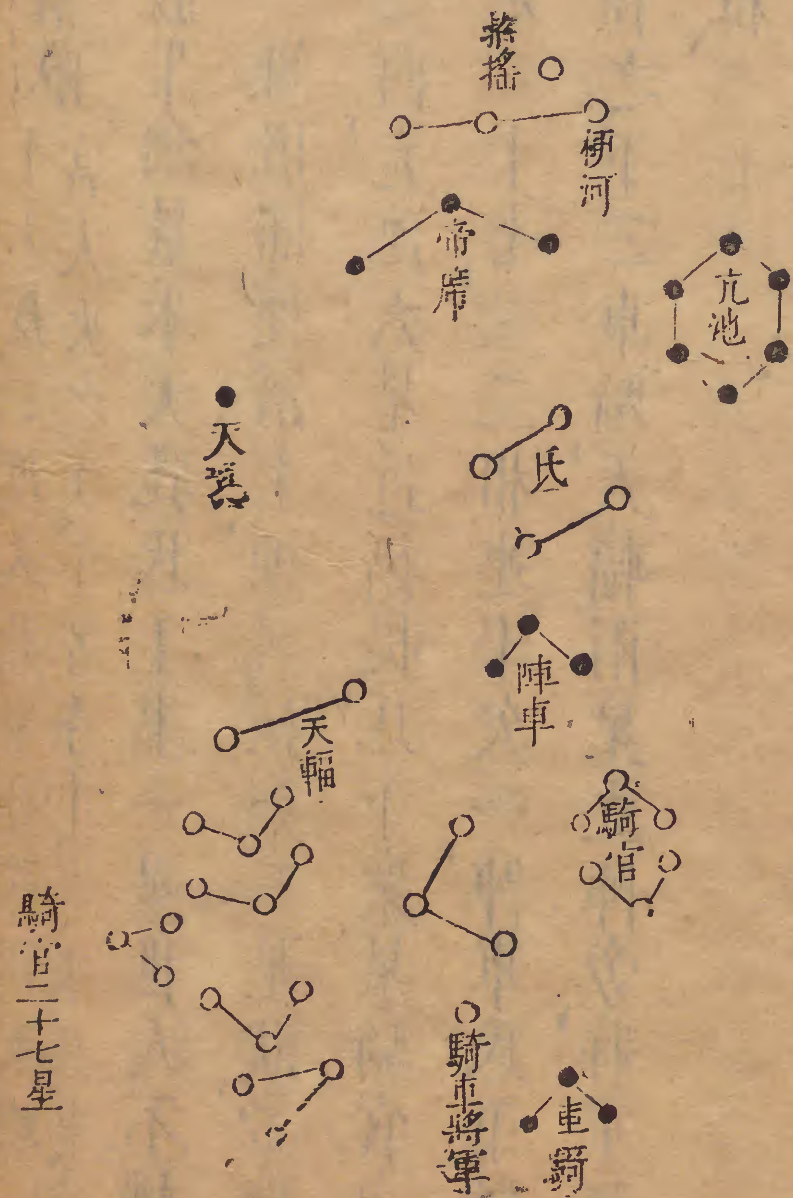 招搖
梗河
帝席
亢池
氐
陣車
天輻
騎官
騎車將軍
車騎
騎官二十七星